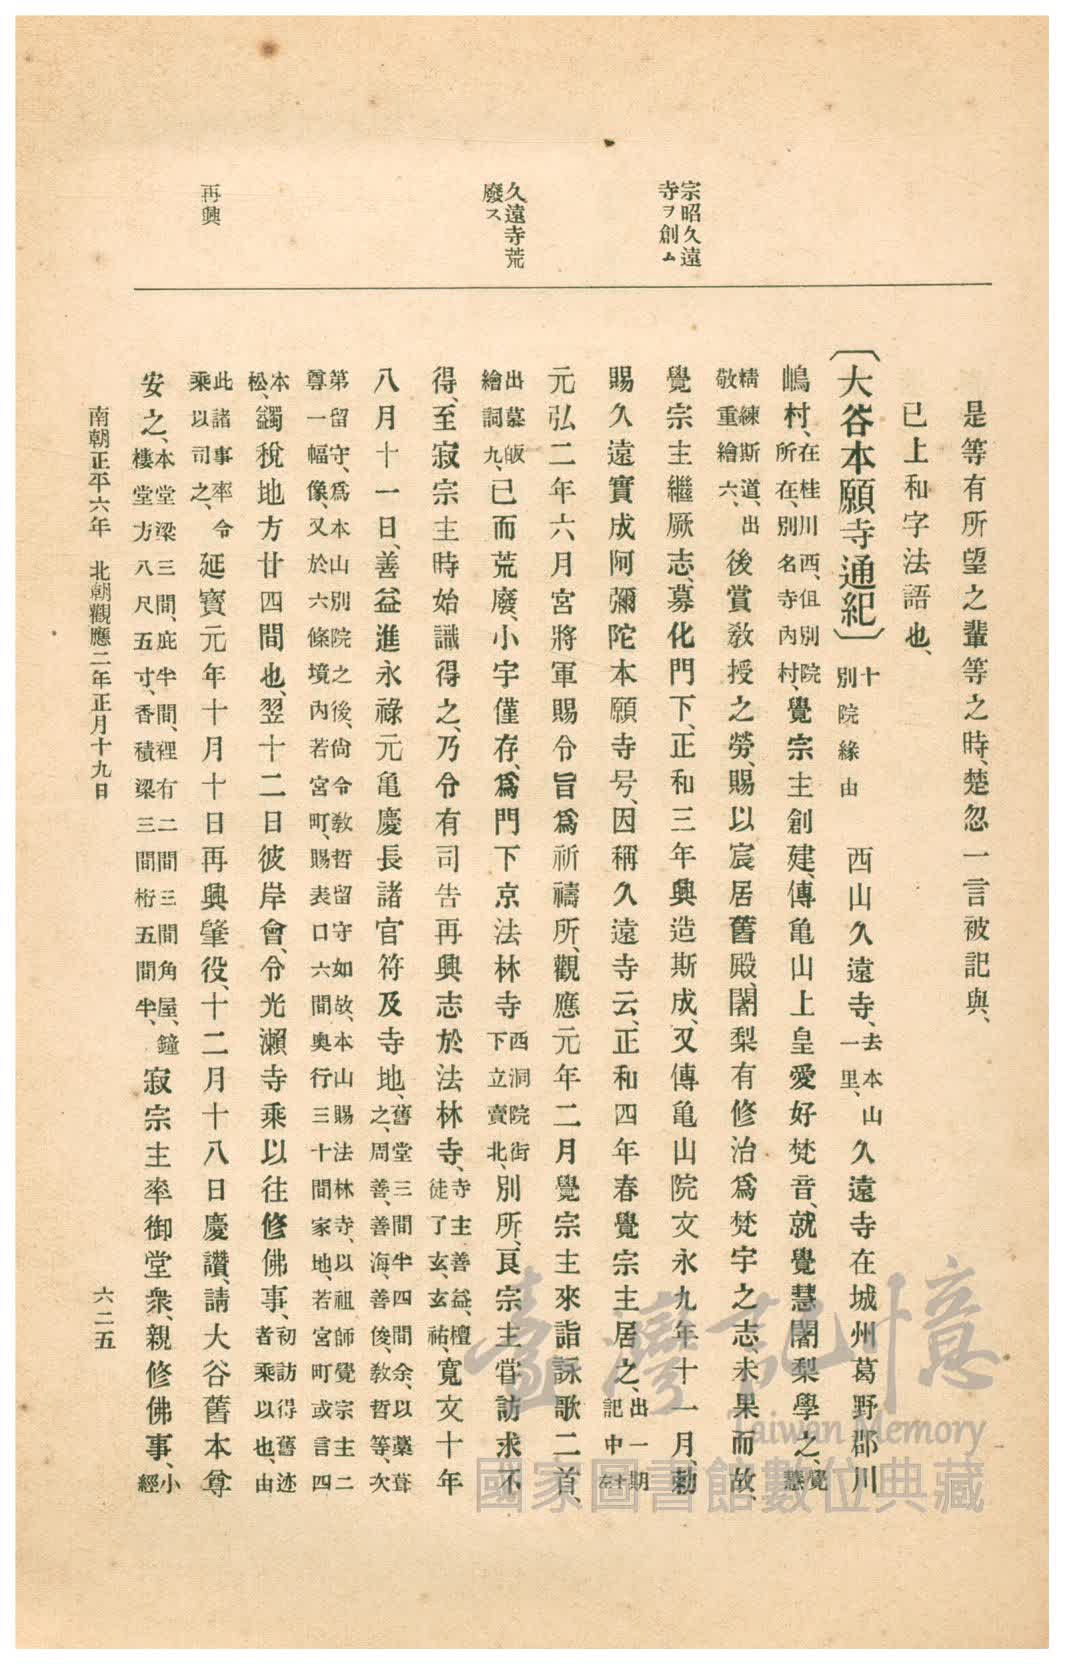 宗昭久遠
寺ヲ創ム
久遠寺荒
廢ス
再興
是等有所望之輩等之時、楚忽一言被記與、
已上和字法語也、
〔大谷本願寺通紀〕十別院緣由 西山久遠寺、去本山一里、久遠寺在城州葛野郡川
嶋村、在桂川西、但別院所在、別名寺內村、覺宗主創建、傳亀山上皇愛好梵音、就覺慧闍梨學之、覺慧
精練斯道、出敬重繪六、後賞敎授之勞、賜以宸居舊殿、闍梨有修治爲梵宇之志、未果而故、
覺宗主繼厥志、募化門下、正和三年興造斯成、又傳亀山院文永九年十一月、勅
賜久遠實成阿彌陀本願寺号、因稱久遠寺云、正和四年春覺宗主居之、出一期記中十左
元弘二年六月宮將軍賜令旨爲祈禱所、觀應元年二月覺宗主來詣詠歌二首、
出慕皈繪詞九、已而荒廢、小宇僅存、爲門下京法林寺西洞院街下立賣北、別所、良宗主甞訪求不
得、至寂宗主時始識得之、乃令有司吿再興志於法林寺、寺主善益、檀徒了玄、玄祐、寬文十年
八月十一日、善益進永祿元亀慶長諸官符及寺地、舊堂三間半四間余、以藁葺之、周善、善海、善俊、敎哲等、次
第留守、爲本山別院之後、尙令敎哲留守如故、本山賜法林寺、以祖師覺宗主二尊一幅像、又於六條境內若宮町、賜表口六間奧行三十間家地、若宮町或言四
本松、蠲稅地方廿四間也、翌十二日彼岸會、令光瀨寺乘以往修佛事、初訪得舊迹者乘以也、由
此諸事率令乘以司之、延寶元年十月十日再興肇役、十二月十八日慶讚、請大谷舊本尊
安之、本堂梁三間、庇半間、裡有二間三間角屋、鐘樓堂方八尺五寸、香積梁三間桁五間半、寂宗主率御堂衆、親修佛事、小經
南朝正平六年 北朝觀應二年正月十九日
六二五
臺灣記憶
Taiwan Memory
國家圖書館數位典藏